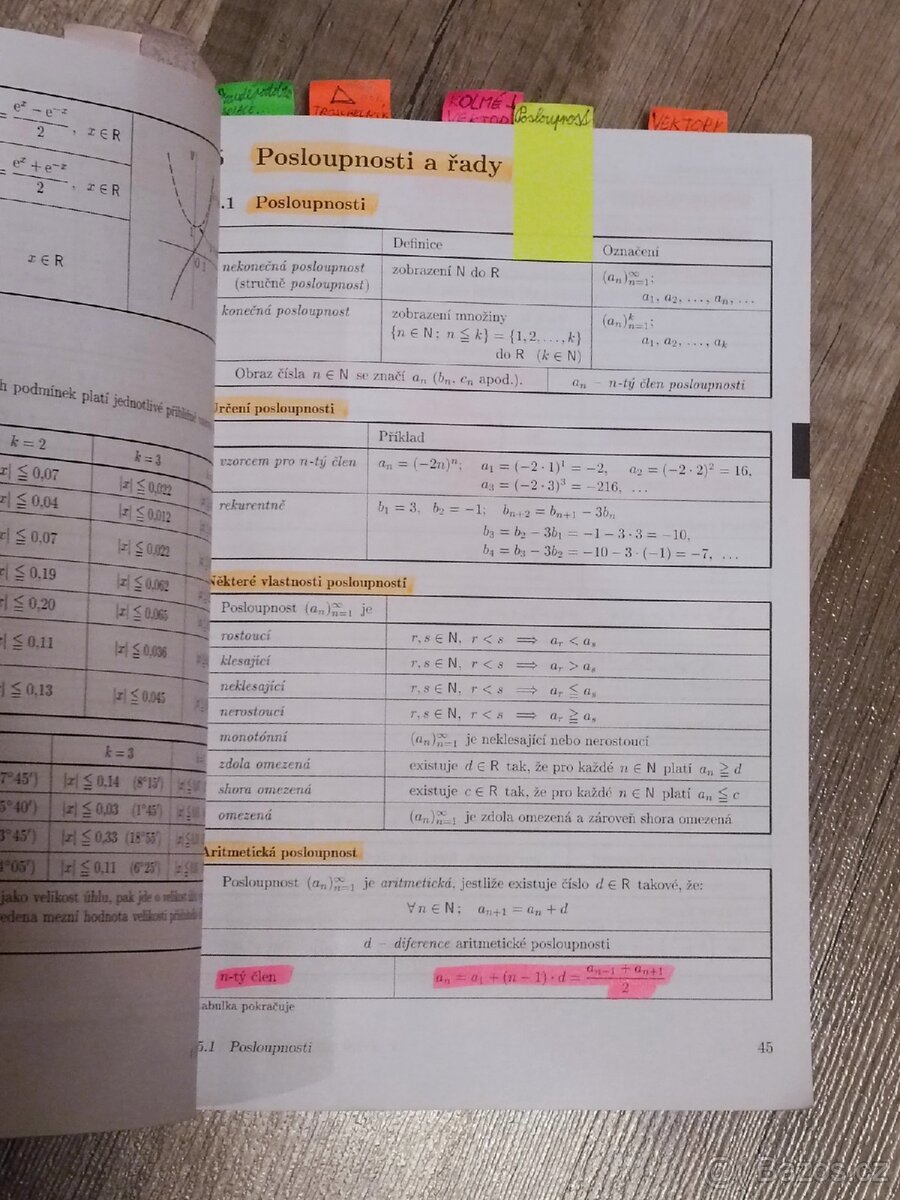 TROJÚHELNÍK
KOLMÉ
VEKTOR
Posloupnost
VEKTORY
= (e^x − e^−x)/2, x ∈ R
= (e^x + e^−x)/2, x ∈ R
x ∈ R
h podmínek platí jednotlivé přibližné
k = 2 k = 3
x| ≦ 0,07 |x| ≦ 0,022
x| ≦ 0,04 |x| ≦ 0,012
x| ≦ 0,07 |x| ≦ 0,022
x| ≦ 0,19 |x| ≦ 0,062
x| ≦ 0,20 |x| ≦ 0,065
x| ≦ 0,11 |x| ≦ 0,036
x| ≦ 0,13 |x| ≦ 0,045
k = 3
7°45′) |x| ≦ 0,14 (8°15′)
5°40′) |x| ≦ 0,03 (1°45′)
3°45′) |x| ≦ 0,33 (18°55′)
4°05′) |x| ≦ 0,11 (6°25′)
jako velikost úhlu, pak jde o velikost
edena mezní hodnota velikosti
Posloupnosti a řady
.1 Posloupnosti
Definice Označení
nekonečná posloupnost zobrazení N do R (aₙ)∞ₙ₌₁;
(stručně posloupnost) a₁, a₂, …, aₙ, …
konečná posloupnost zobrazení množiny (aₙ)ᵏₙ₌₁;
{n ∈ N; n ≦ k} = {1, 2, …, k} a₁, a₂, …, aₖ
do R (k ∈ N)
Obraz čísla n ∈ N se značí aₙ (bₙ, cₙ apod.). aₙ – n-tý člen posloupnosti
Určení posloupnosti
Příklad
vzorcem pro n-tý člen aₙ = (−2n)ⁿ; a₁ = (−2 · 1)¹ = −2, a₂ = (−2 · 2)² = 16,
a₃ = (−2 · 3)³ = −216, …
rekurentně b₁ = 3, b₂ = −1; bₙ₊₂ = bₙ₊₁ − 3bₙ
b₃ = b₂ − 3b₁ = −1 − 3 · 3 = −10,
b₄ = b₃ − 3b₂ = −10 − 3 · (−1) = −7, …
Některé vlastnosti posloupností
Posloupnost (aₙ)∞ₙ₌₁ je
rostoucí r, s ∈ N, r < s ⟹ aᵣ < aₛ
klesající r, s ∈ N, r < s ⟹ aᵣ > aₛ
neklesající r, s ∈ N, r < s ⟹ aᵣ ≦ aₛ
nerostoucí r, s ∈ N, r < s ⟹ aᵣ ≧ aₛ
monotónní (aₙ)∞ₙ₌₁ je neklesající nebo nerostoucí
zdola omezená existuje d ∈ R tak, že pro každé n ∈ N platí aₙ ≧ d
shora omezená existuje c ∈ R tak, že pro každé n ∈ N platí aₙ ≦ c
omezená (aₙ)∞ₙ₌₁ je zdola omezená a zároveň shora omezená
Aritmetická posloupnost
Posloupnost (aₙ)∞ₙ₌₁ je aritmetická, jestliže existuje číslo d ∈ R takové, že:
∀ n ∈ N; aₙ₊₁ = aₙ + d
d – diference aritmetické posloupnosti
n-tý člen aₙ = a₁ + (n − 1) · d = (aₙ₋₁ + aₙ₊₁)/2
abulka pokračuje
5.1 Posloupnosti 45
Bazos.cz